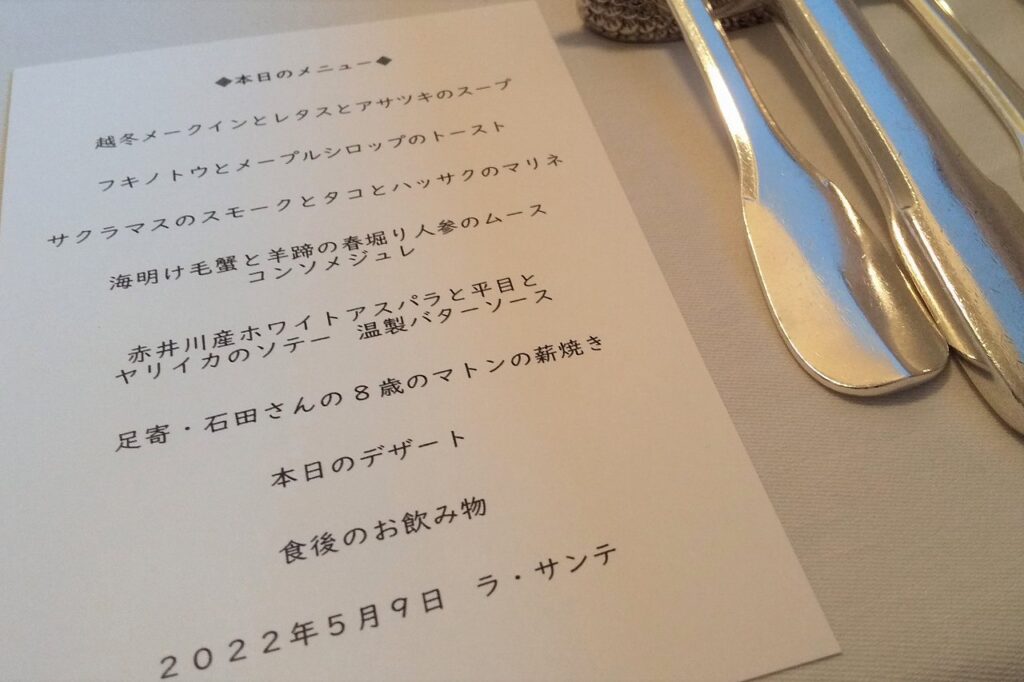 ◆本日のメニュー◆
越冬メークインとレタスとアサツキのスープ
フキノトウとメープルシロップのトースト
サクラマスのスモークとタコとハッサクのマリネ
海明け毛蟹と羊蹄の春堀り人参のムース
コンソメジュレ
赤井川産ホワイトアスパラと平目と
ヤリイカのソテー 温製バターソース
足寄・石田さんの8歳のマトンの薪焼き
本日のデザート
食後のお飲み物
2022年5月9日 ラ・サンテ